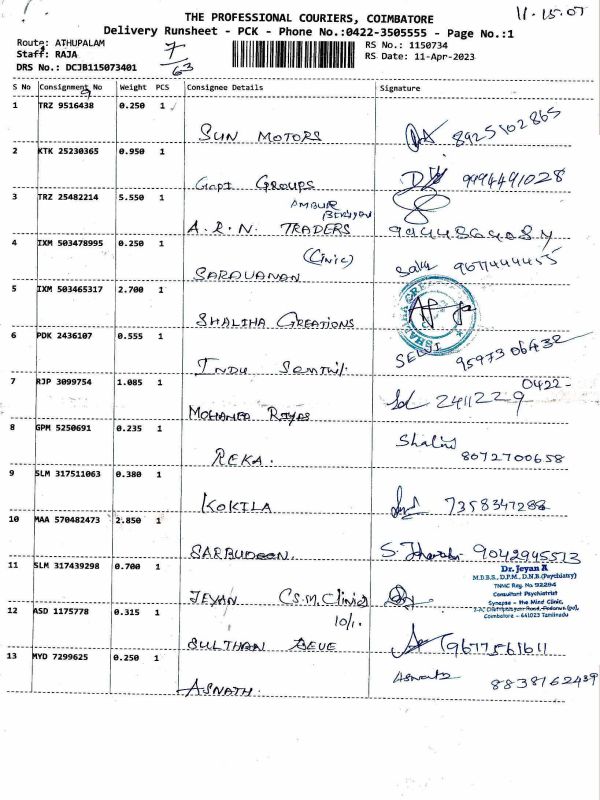 11.15.07
THE PROFESSIONAL COURIERS, COIMBATORE
Delivery Runsheet - PCK - Phone No.:0422-3505555 - Page No.:1
Route: ATHUPALAM 7/63 RS No.: 1150734
Staff: RAJA RS Date: 11-Apr-2023
DRS No.: DCJB115073401
S No Consignment No Weight PCS Consignee Details Signature
1 TRZ 9516438 0.250 1
SUN MOTORS 8925102865
2 KTK 25230365 0.950 1
GROUPS 9994491028
3 TRZ 25482214 5.550 1
AMBUR
A.R.N. TRADERS
4 IXM 503478995 0.250 1
(Clinic)
SARAVANAN 9677444455
5 IXM 503465317 2.700 1
SHALIHA CREATIONS
6 PDK 2436107 0.555 1
SELVI 9597306432
INDU
7 RJP 3099754 1.085 1
0422-
MOHAMED RIYAS 2411229
8 GPM 5250691 0.235 1
REKA. 8072700658
9 SLM 317511063 0.380 1
KOKILA 7358347286
10 MAA 570482473 2.850 1
SARBUDEEN. 9042945513
11 SLM 317439298 0.700 1
Dr. Jeyan R
M.B.B.S., D.P.M., D.N.B.(Psychiatry)
TNMC Reg. No. 92294
Consultant Psychiatrist
Synapse - the Mind Clinic,
Coimbatore - 641023 Tamilnadu
JEYAN CS.M. Clinic)
10/1.
12 ASD 1175778 0.315 1
SULTHAN 9677561611
13 MYD 7299625 0.250 1
ASNATH. 8838162439